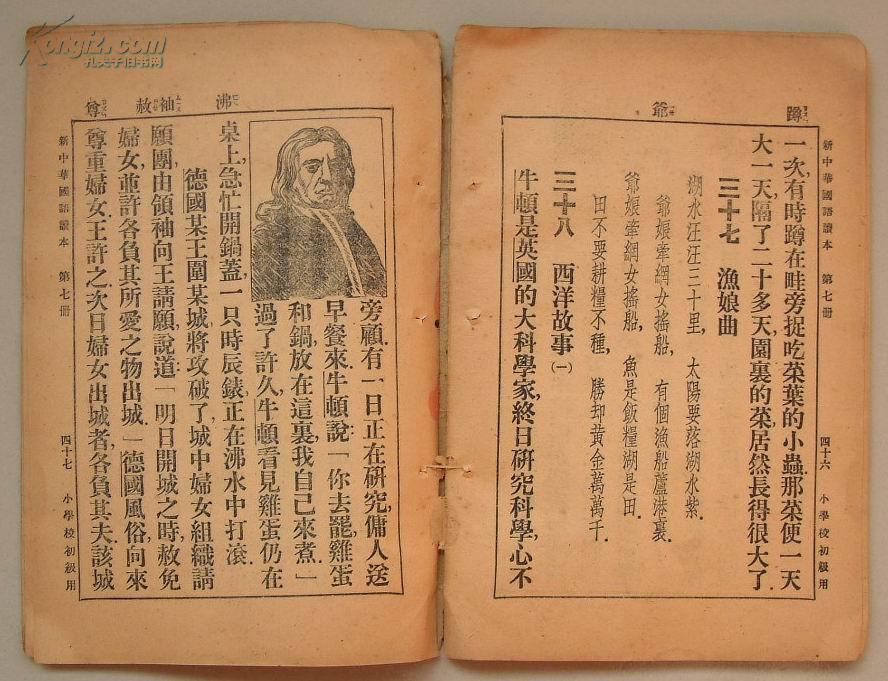 Kongfz.com
孔夫子旧书网
蹲
爺
新中華國語讀本 第七冊
四十六 小學校初級用
一次,有時蹲在畦旁捉吃菜葉的小蟲,那菜便一天
大一天,隔了二十多天,園裏的菜,居然長得很大了.
三十七 漁娘曲
湖水汪汪三十里, 太陽要落湖水紫.
爺娘牽網女搖船, 有個漁船蘆港裏.
爺娘牽網女搖船, 魚是飯糧湖是田.
田不要耕糧不種, 勝却黃金萬萬千.
三十八 西洋故事(一)
牛頓是英國的大科學家,終日研究科學,心不
沸
袖
赦
尊
旁顧.有一日,正在研究,傭人送
早餐來.牛頓說:「你去罷,雞蛋
和鍋,放在這裏,我自己來煮.」
過了許久,牛頓看見雞蛋仍在
桌上,急忙開鍋蓋,一只時辰錶,正在沸水中打滾.
德國某王圍某城,將攻破了.城中婦女組織請
願團,由領袖向王請願,說道:「明日開城之時,赦免
婦女,並許各負其所愛之物出城.」德國風俗,向來
尊重婦女,王許之.次日,婦女出城者,各負其夫.該城
新中華國語讀本 第七冊
四十七 小學校初級用